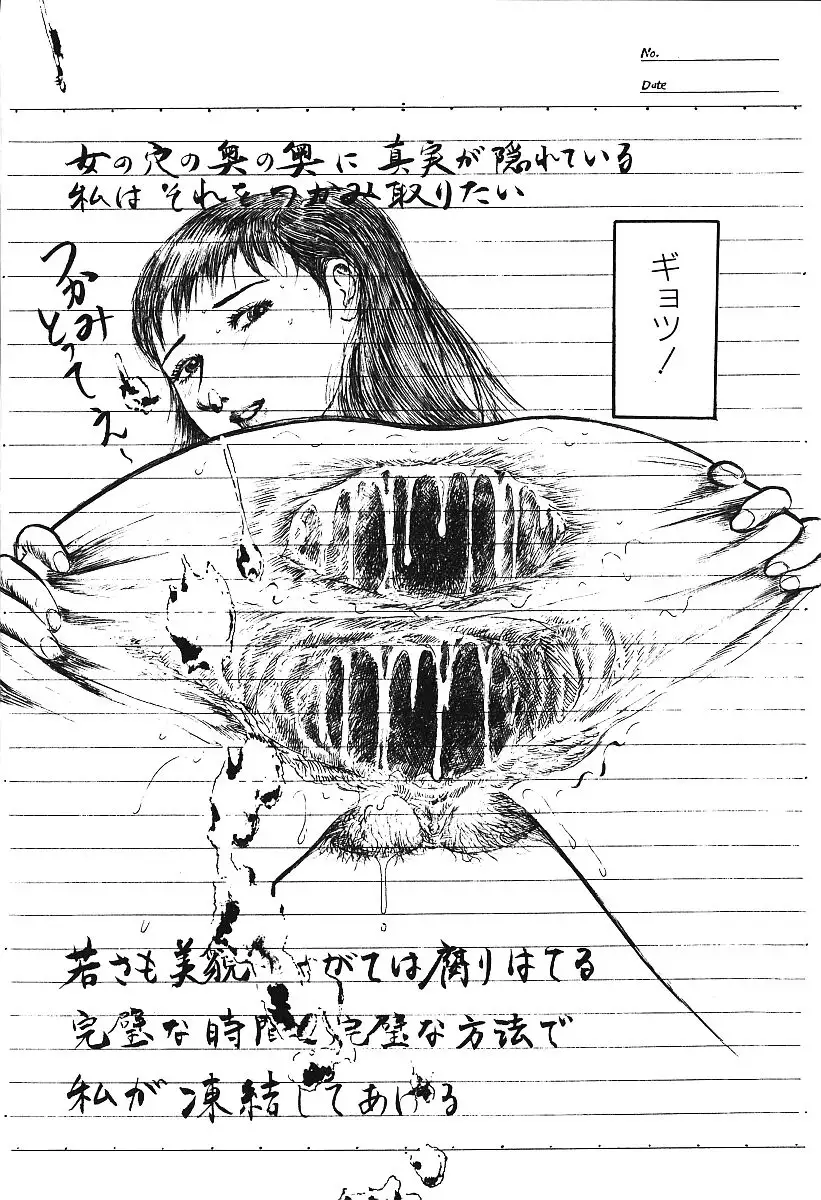 No.
Date
女の穴の奥の奥に 真実が隠れている
私は それを つかみ取りたい
つかみ
とってえ〜
ギョッ!
若さも美貌 がては腐りはてる
完璧な時間 完璧な方法で
私が 凍結してあげる